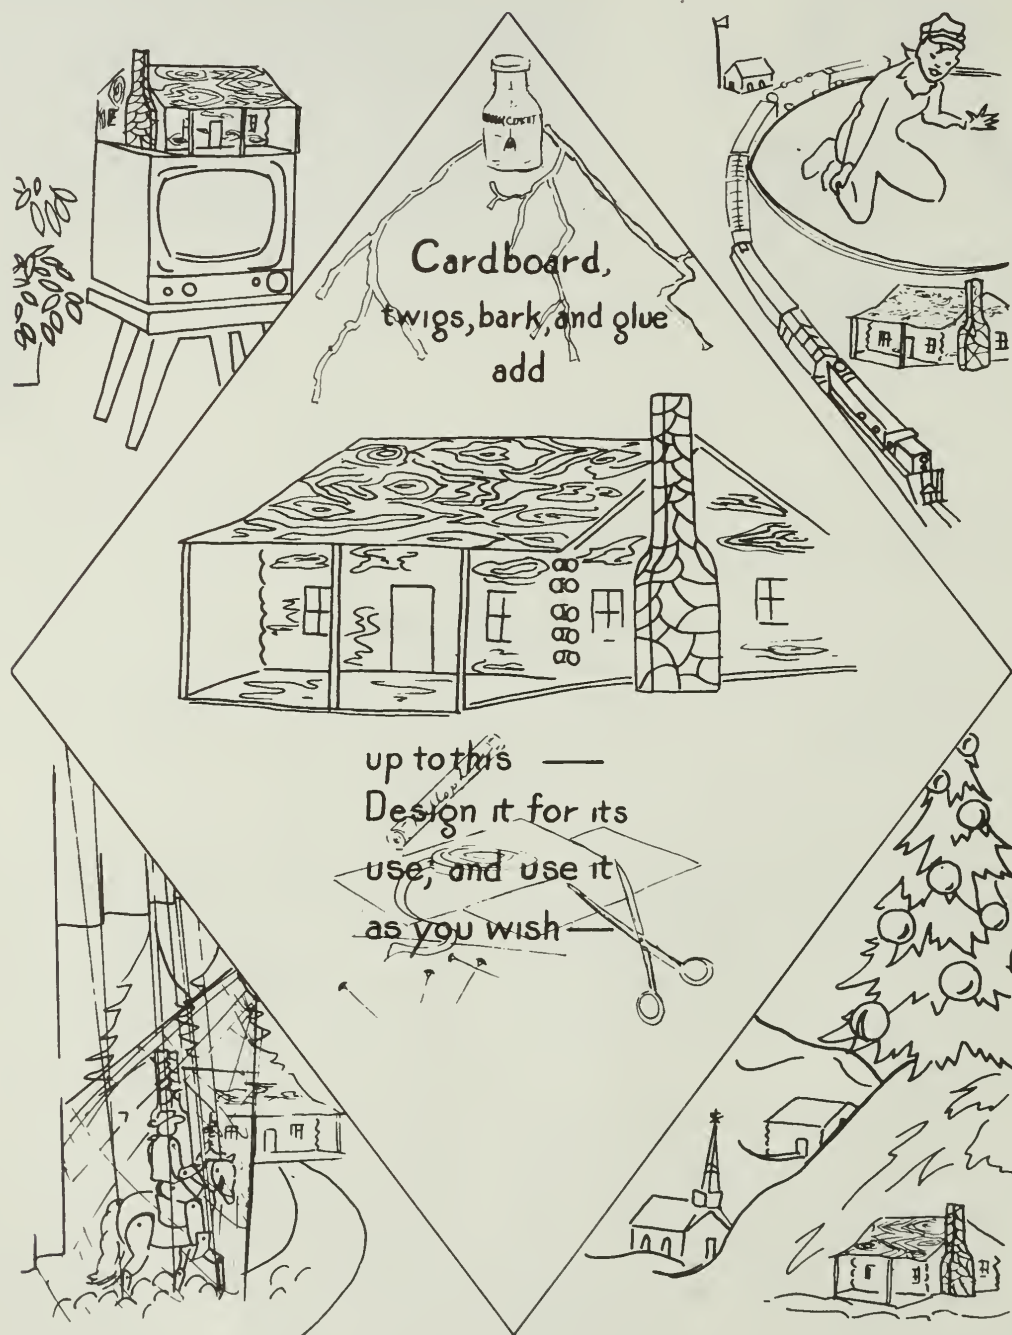 Cardboard,
twigs, bark, and glue
add
up to this —
Design it for its
use, and use it
as you wish —